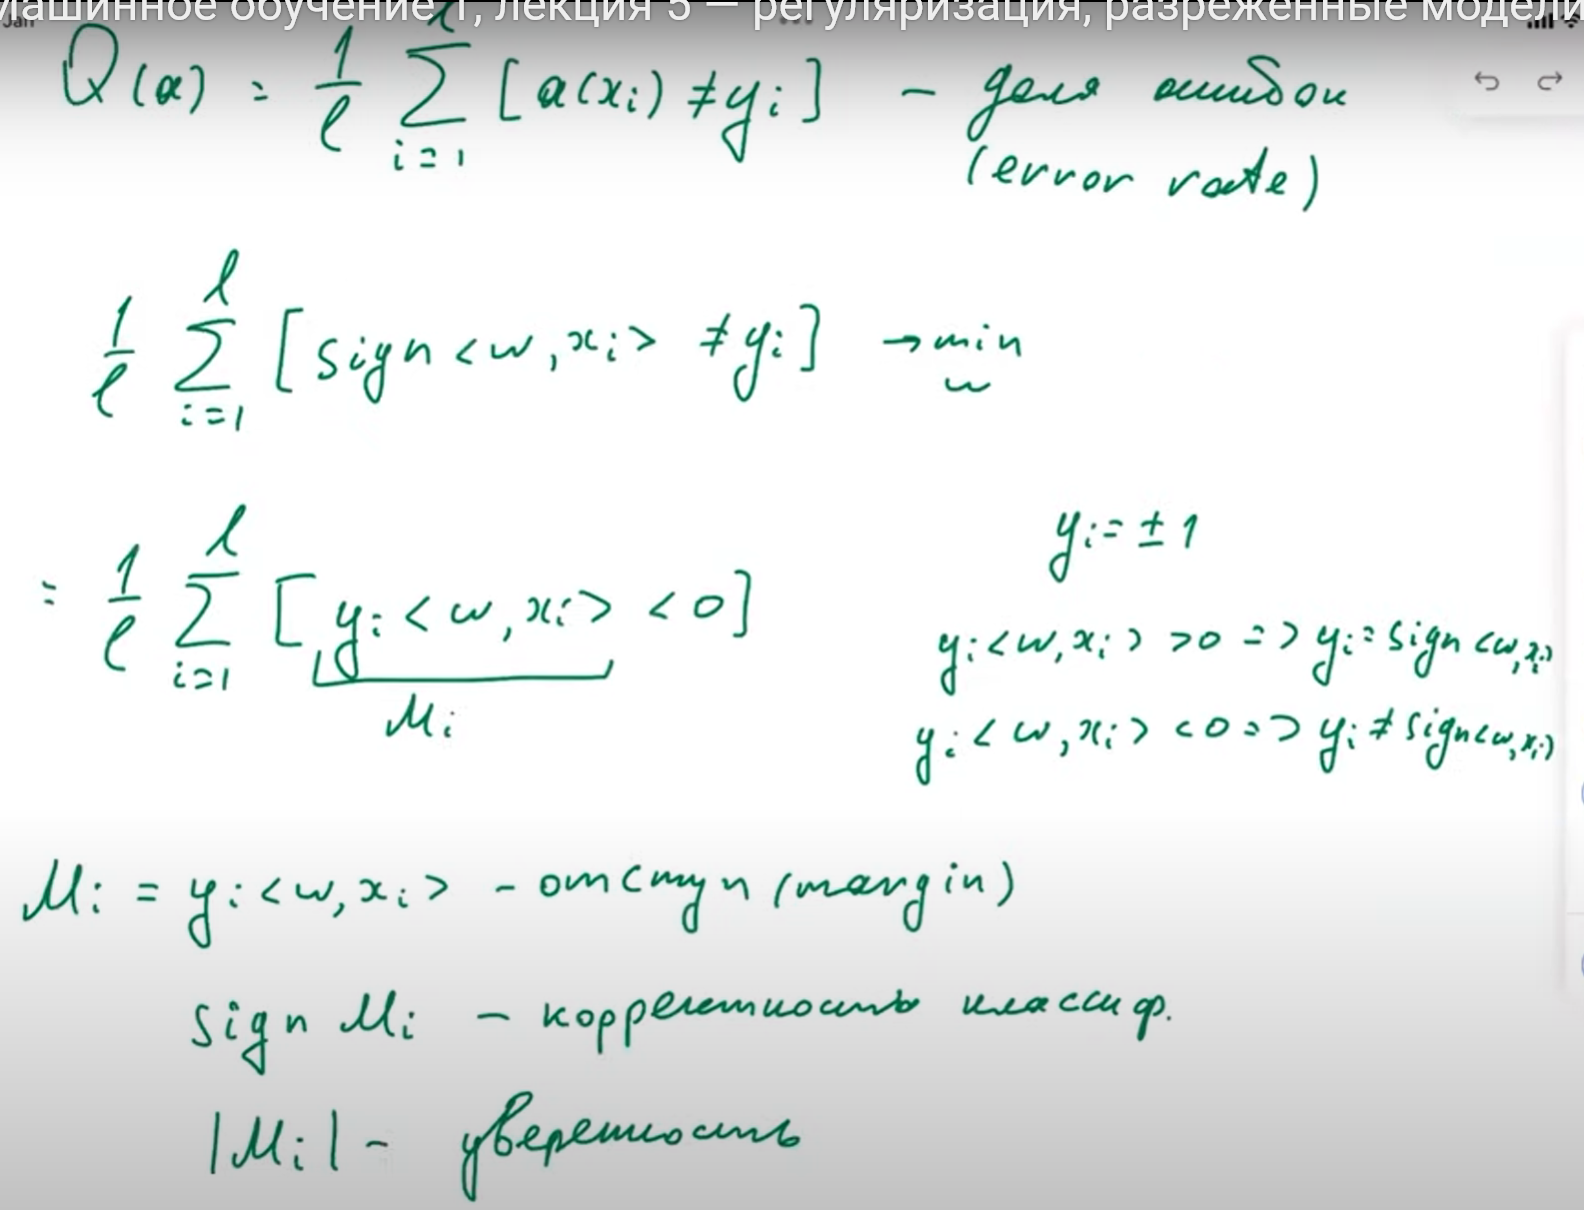 Машинное обучение 1, лекция 5 — регуляризация, разреженные модели
Jan
Q(a) = 1/ℓ ∑_{i=1}^{ℓ} [a(xᵢ) ≠ yᵢ] – доля ошибок
(error rate)
1/ℓ ∑_{i=1}^{ℓ} [sign <w, xᵢ> ≠ yᵢ] → min_w
yᵢ = ± 1
= 1/ℓ ∑_{i=1}^{ℓ} [yᵢ <w, xᵢ> < 0]
Mᵢ
yᵢ <w, xᵢ> > 0 => yᵢ = sign <w, xᵢ>
yᵢ <w, xᵢ> < 0 => yᵢ ≠ sign <w, xᵢ>
Mᵢ = yᵢ <w, xᵢ> – отступ (margin)
sign Mᵢ – корректность классиф.
|Mᵢ| – уверенность